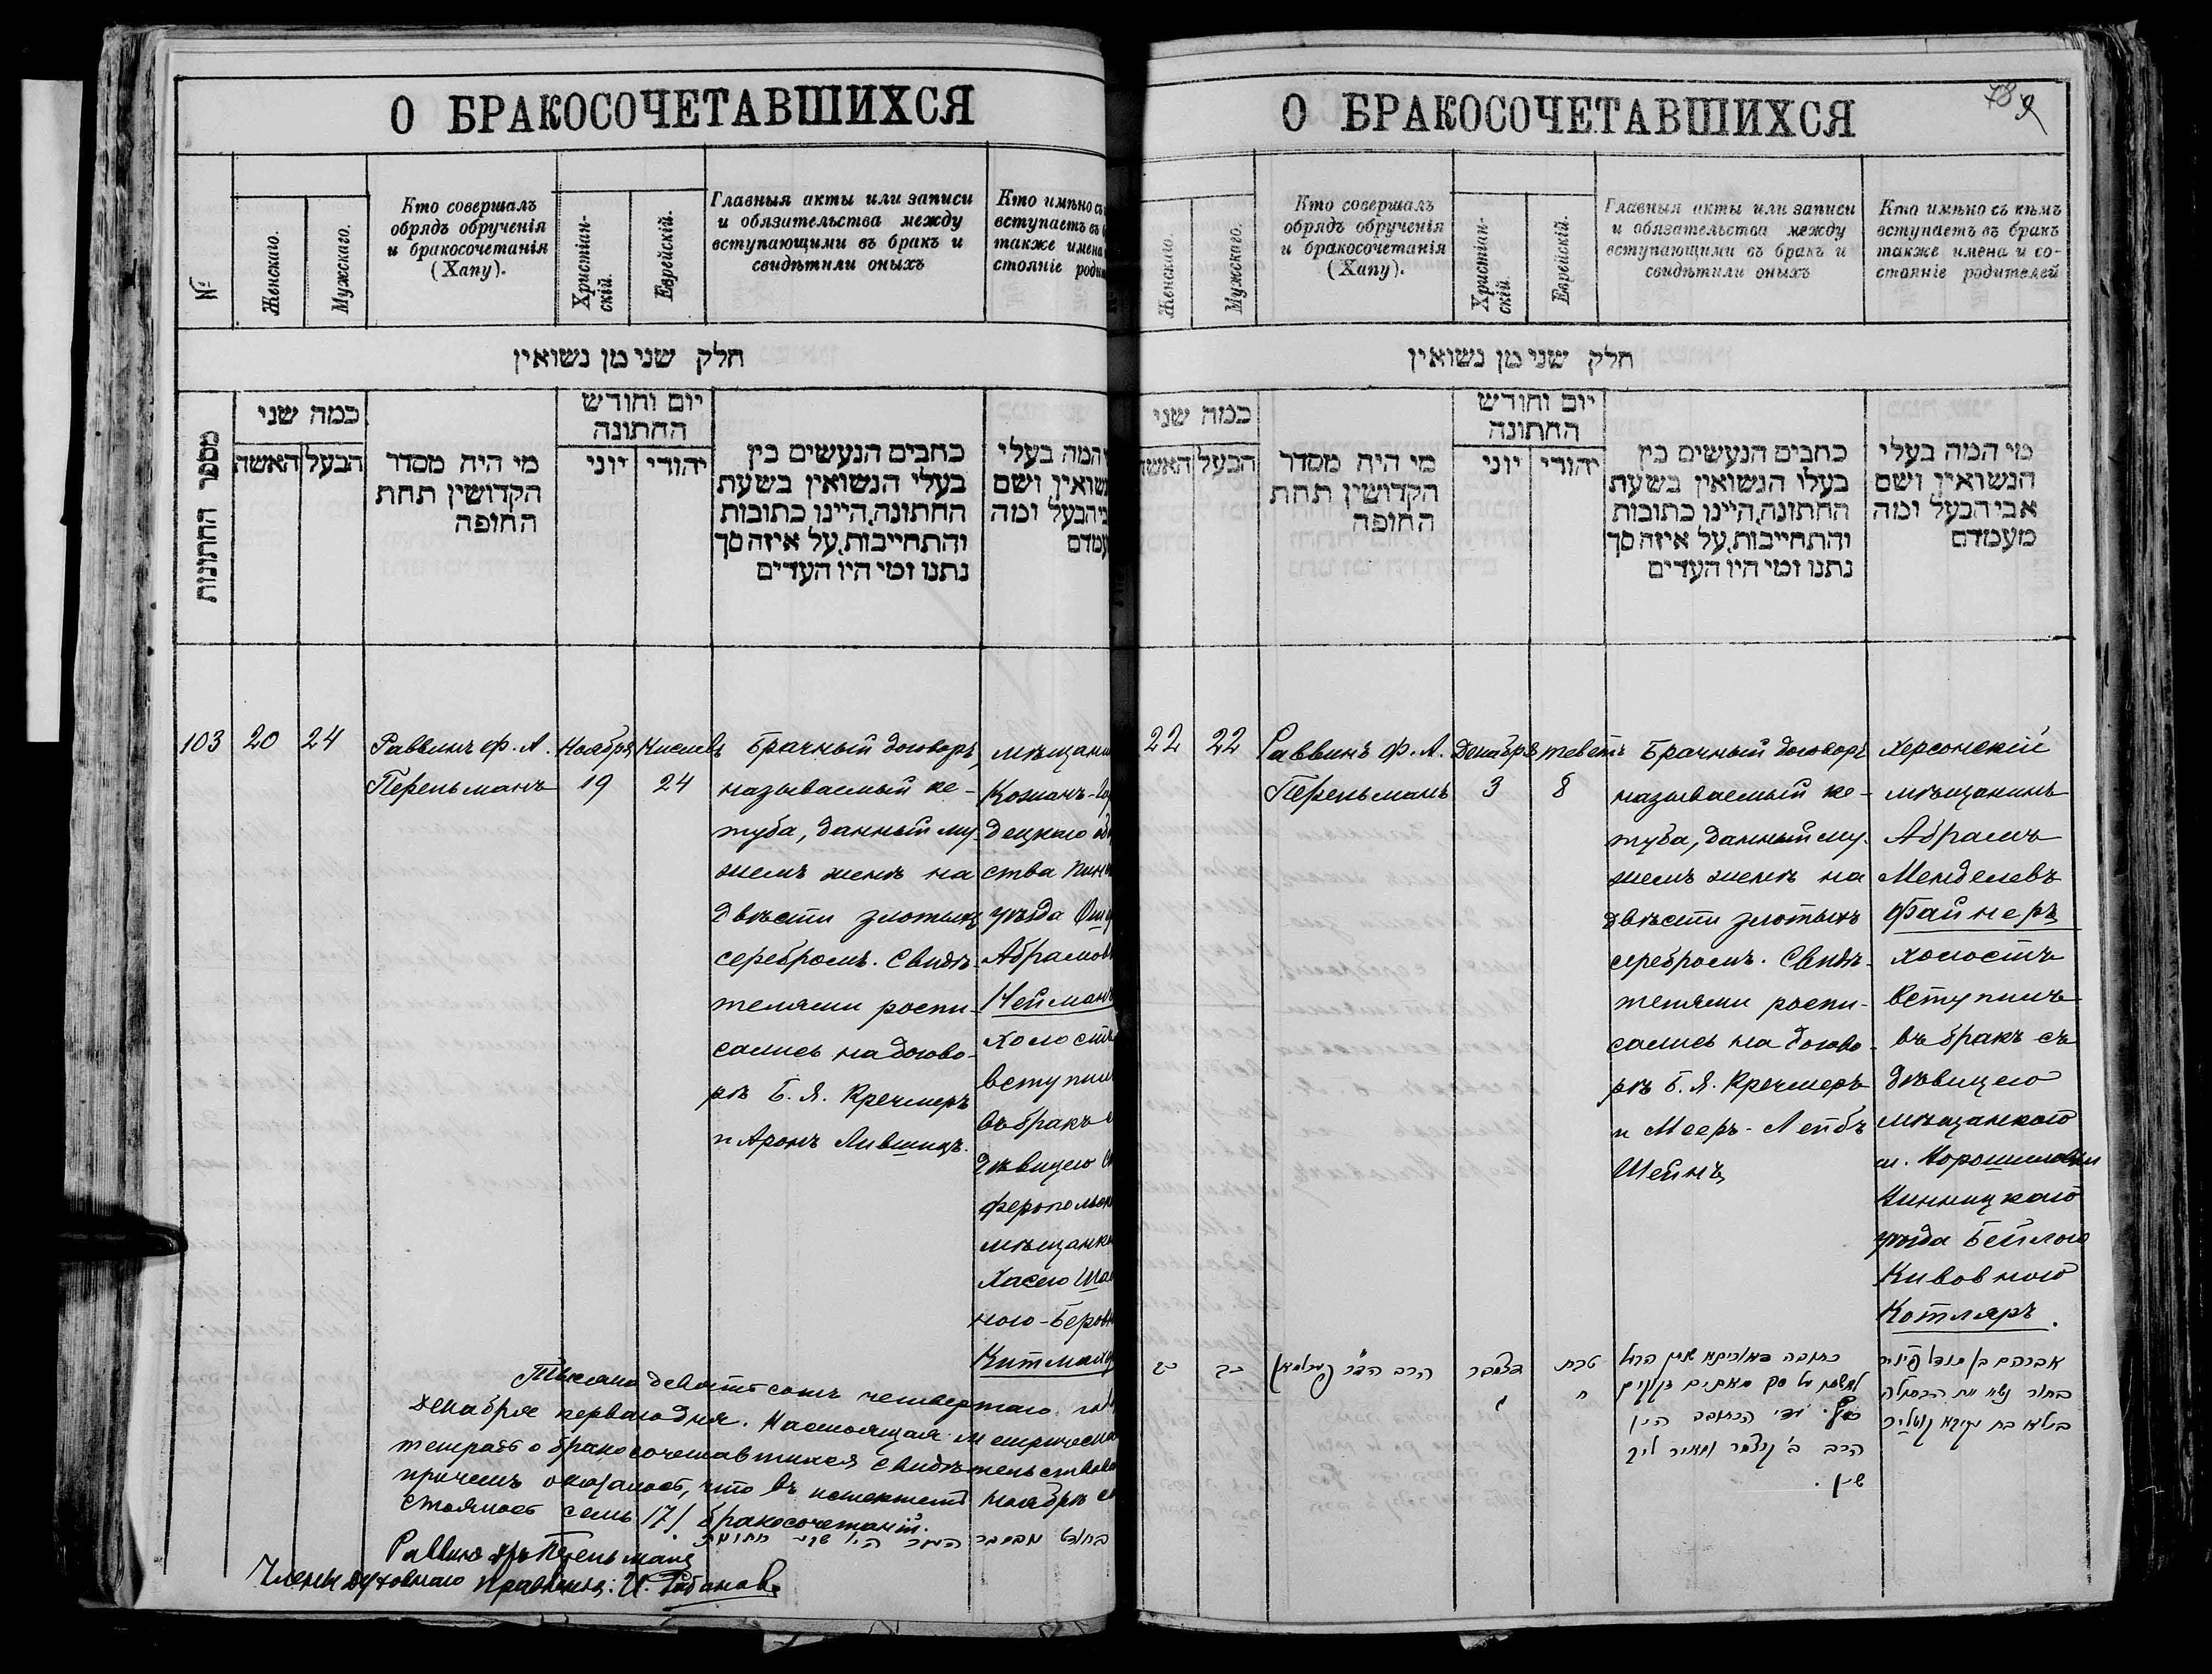 О БРАКОСОЧЕТАВШИХСЯ
№
Женскаго.
Мужскаго.
Кто совершалъ
обрядъ обрученія
и бракосочетанія
(Хапу).
Христіан-
скій.
Еврейскій.
Главныя акты или записи
и обязательства между
вступающими въ бракъ и
свидѣтили оныхъ
Кто имѣно съ
вступаетъ въ
также имена
стояніе роди
חלק שני מן נשואין
מספר החתונות
כמה שני
האשה
הבעל
מי היה מסדר
הקדושין תחת
החופה
יום וחודש
החתונה
יוני
יהודי
כתבים הנעשים בין
בעלי הנשואין בשעת
החתונה, היינו כתובות
והתחייבות, על איזה סך
נתנו ומי היו העדים
המה בעלי
נשואין ושם
אבי הבעל ומה
מעמדם
103
20
24
Раввинъ Ф. А.
Перельманъ
Ноября
19
Кислевъ
24
Брачный договоръ,
называемый ке-
туба, данный му-
жемъ женѣ на
двѣсти злотыхъ
серебромъ. Свидѣ-
телями роспи-
сались на догово-
рѣ Б. Я. Кречмеръ
и Аронъ Лившицъ.
мѣщани
Кожанъ-Го
децкаго об
ства Пин
уѣзда
Абрамов
Нейман
холостъ
вступил
въ бракъ
дѣвицею
ферополь
мѣщанк
Хасею
ною-Беров
Китма
Тысяча девятьсотъ четвертаго
декабря перваго дня. Настоящая метрическа
тетрадь о бракосочетавшихся свидѣтельствова
причемъ оказалось, что въ истекшемъ ноябрѣ со
стоялось семь /7/ бракосочетаній.
Раввинъ Перельманъ
Члены духовнаго правленія: И.
О БРАКОСОЧЕТАВШИХСЯ
78
Женскаго.
Мужскаго.
Кто совершалъ
обрядъ обрученія
и бракосочетанія
(Хапу).
Христіан-
скій.
Еврейскій.
Главныя акты или записи
и обязательства между
вступающими въ бракъ и
свидѣтили оныхъ
Кто имѣно съ кѣмъ
вступаетъ въ бракъ
также имена и со-
стояніе родителей
חלק שני מן נשואין
כמה שני
האשה
הבעל
מי היה מסדר
הקדושין תחת
החופה
יום וחודש
החתונה
יוני
יהודי
כתבים הנעשים בין
בעלי הנשואין בשעת
החתונה, היינו כתובות
והתחייבות, על איזה סך
נתנו ומי היו העדים
מי המה בעלי
הנשואין ושם
אבי הבעל ומה
מעמדם
22
22
Раввинъ Ф. А.
Перельманъ
Декабря
3
Теветъ
8
Брачный договоръ
называемый ке-
туба, данный му-
жемъ женѣ на
двѣсти злотыхъ
серебромъ. Свидѣ-
телями роспи-
сались на догово-
рѣ Б. Я. Кречмеръ
и Мееръ-Лейбъ
Шейнъ
Херсонскій
мѣщанинъ
Абрамъ
Менделевъ
Файнеръ
холостъ
вступилъ
въ бракъ съ
дѣвицею
мѣщанкою
м. Ворошиловки
Винницкаго
уѣзда Бейлою
Кивовною
Котляръ.
כב
כב
דצמבר
טבת
ח